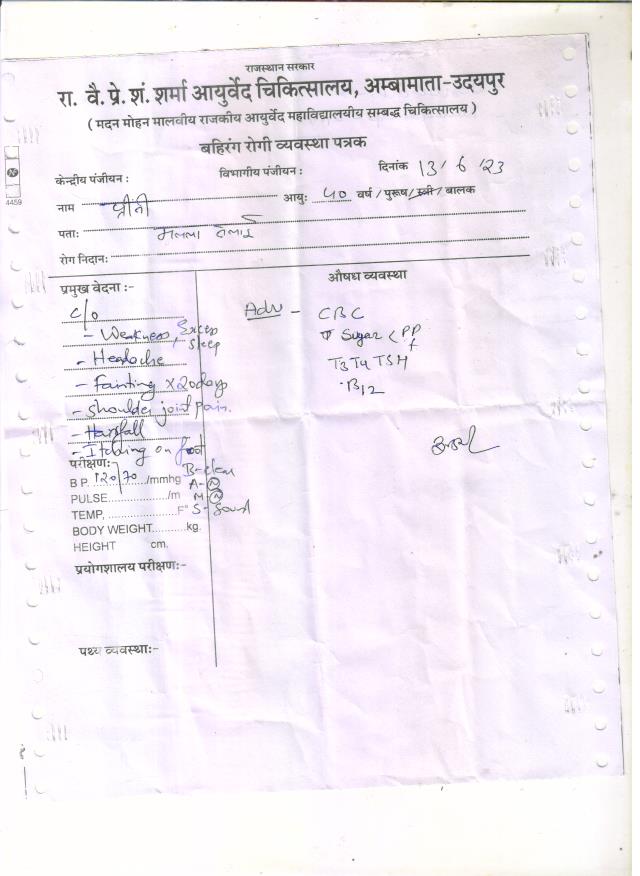 राजस्थान सरकार
रा. वै. प्रे. शं. शर्मा आयुर्वेद चिकित्सालय, अम्बामाता-उदयपुर
( मदन मोहन मालवीय राजकीय आयुर्वेद महाविद्यालयीय सम्बद्ध चिकित्सालय )
बहिरंग रोगी व्यवस्था पत्रक
केन्द्रीय पंजीयन : विभागीय पंजीयन : दिनांक 13/6/23
4459
नाम प्रीती आयुः ५० वर्ष / पुरूष/स्त्री/ बालक
पताः मल्ला तलाई
रोग निदानः
प्रमुख वेदना :- औषध व्यवस्था
c/o Adv - CBC
- Weakness, Excess Sleep
Sugar < PP F
- Headache
T3 T4 TSH
- Fainting x 20 days
B12
- Shoulder joint pain.
- Hairfall
- Itching on foot
परीक्षण:-
B P. 120/70 /mmhg B-clear
PULSE /m A-N
M-N
TEMP, F" S-Sound
BODY WEIGHT kg.
HEIGHT cm.
प्रयोगशालय परीक्षण:-
पथ्य व्यवस्था:-